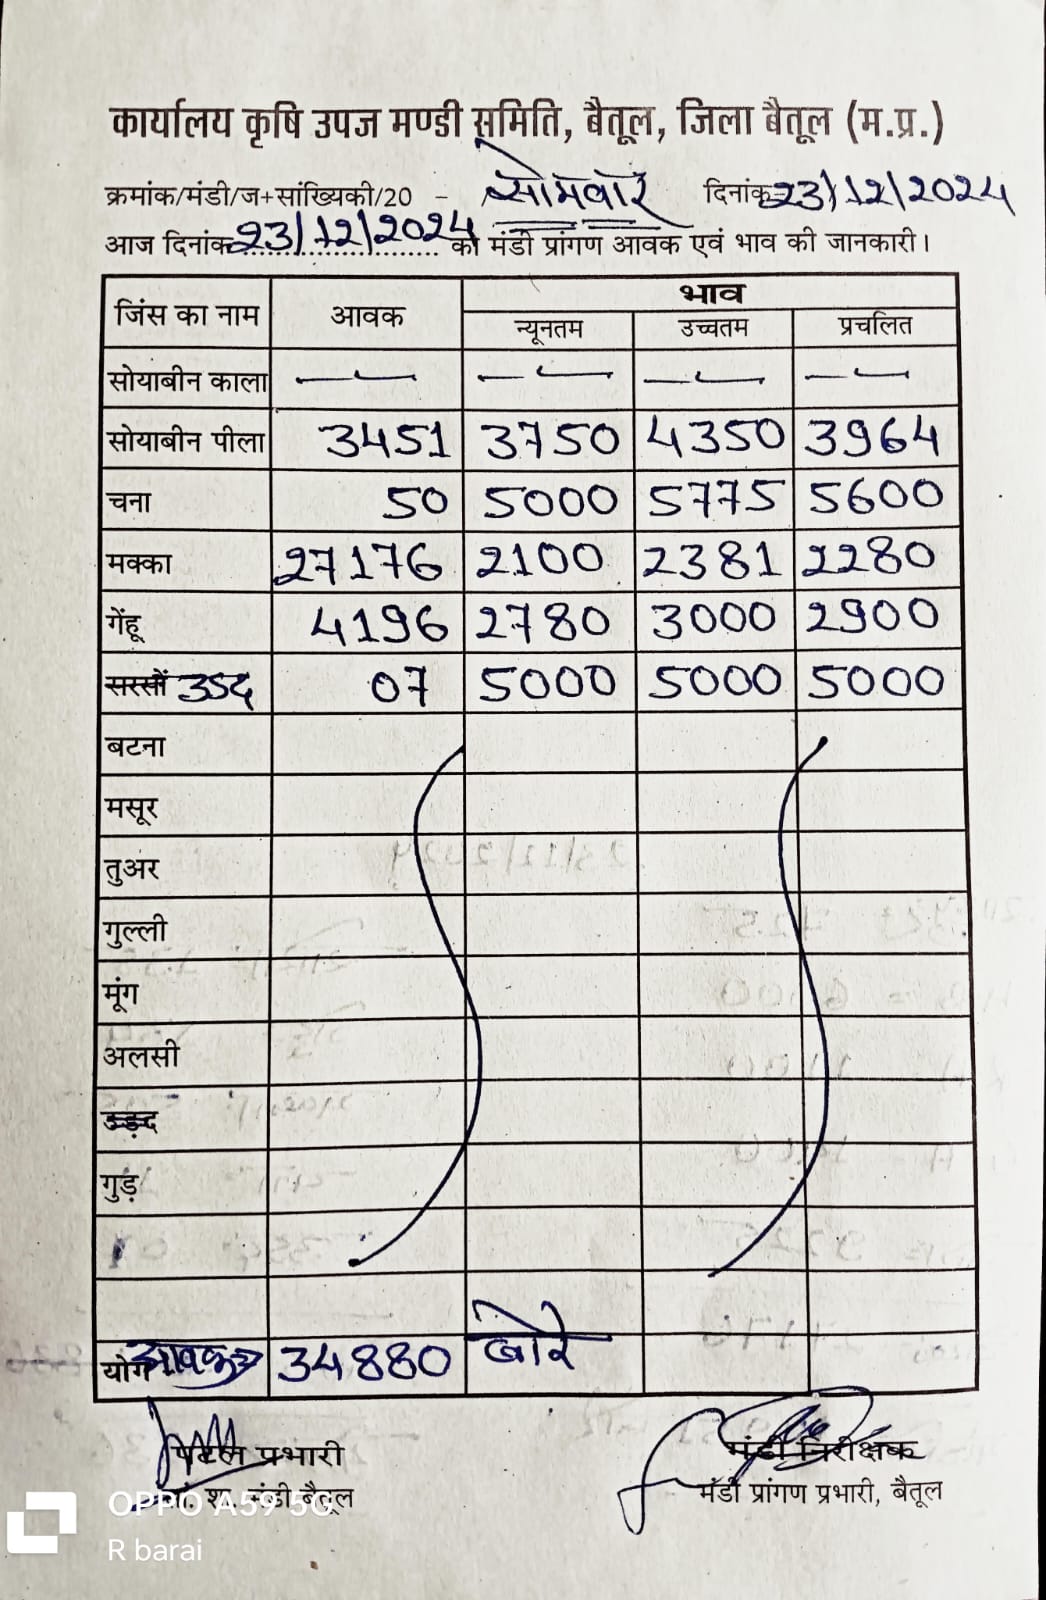 कार्यालय कृषि उपज मण्डी समिति, बैतूल, जिला बैतूल (म.प्र.)
क्रमांक/मंडी/ज+सांख्यिकी/20 - सोमवार दिनांक 23/12/2024
आज दिनांक 23/12/2024 को मंडी प्रांगण आवक एवं भाव की जानकारी।
जिंस का नाम आवक भाव
न्यूनतम उच्चतम प्रचलित
सोयाबीन काला — — — —
सोयाबीन पीला 3451 3750 4350 3964
चना 50 5000 5775 5600
मक्का 27176 2100 2381 2280
गेंहू 4196 2780 3000 2900
सरसों उड़द 07 5000 5000 5000
बटना
मसूर
तुअर
गुल्ली
मूंग
अलसी
उड़द
गुड़
योग आवक 34880 बोरे
प्रभारी मंडी निरीक्षक
मंडी बैतूल मंडी प्रांगण प्रभारी, बैतूल
OPPO A59 5G
R barai